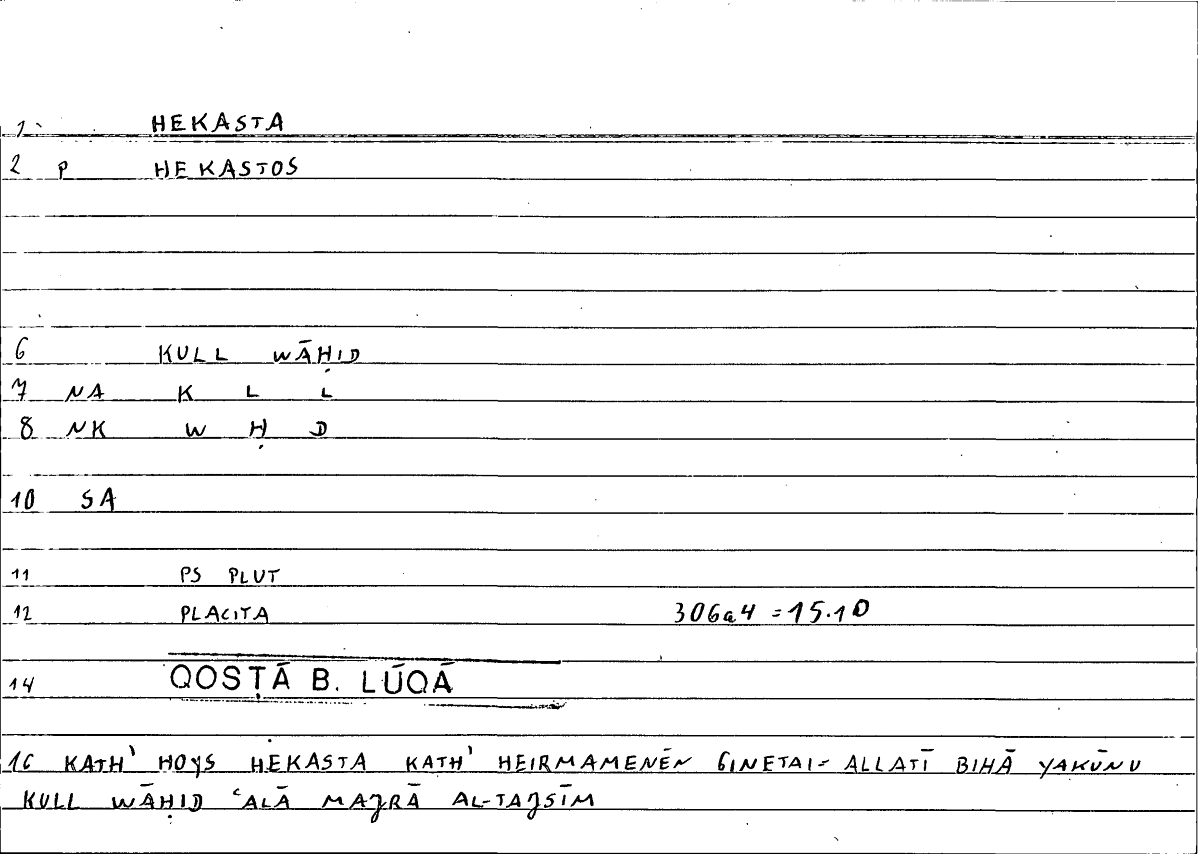 1 HEKASTA
2 P HEKASTOS
6 KULL WĀḤID
7 NA K L L
8 NK W Ḥ D
10 SA
11 PS PLUT
12 PLACITA 306a4 = 15.10
14 QOSṬĀ B. LŪQĀ
16 KATH' HOYS HEKASTA KATH' HEIRMAMENĒN GINETAI = ALLATĪ BIHĀ YAKŪNU
KULL WĀḤID ʿALĀ MAJRĀ AL-TAJSĪM